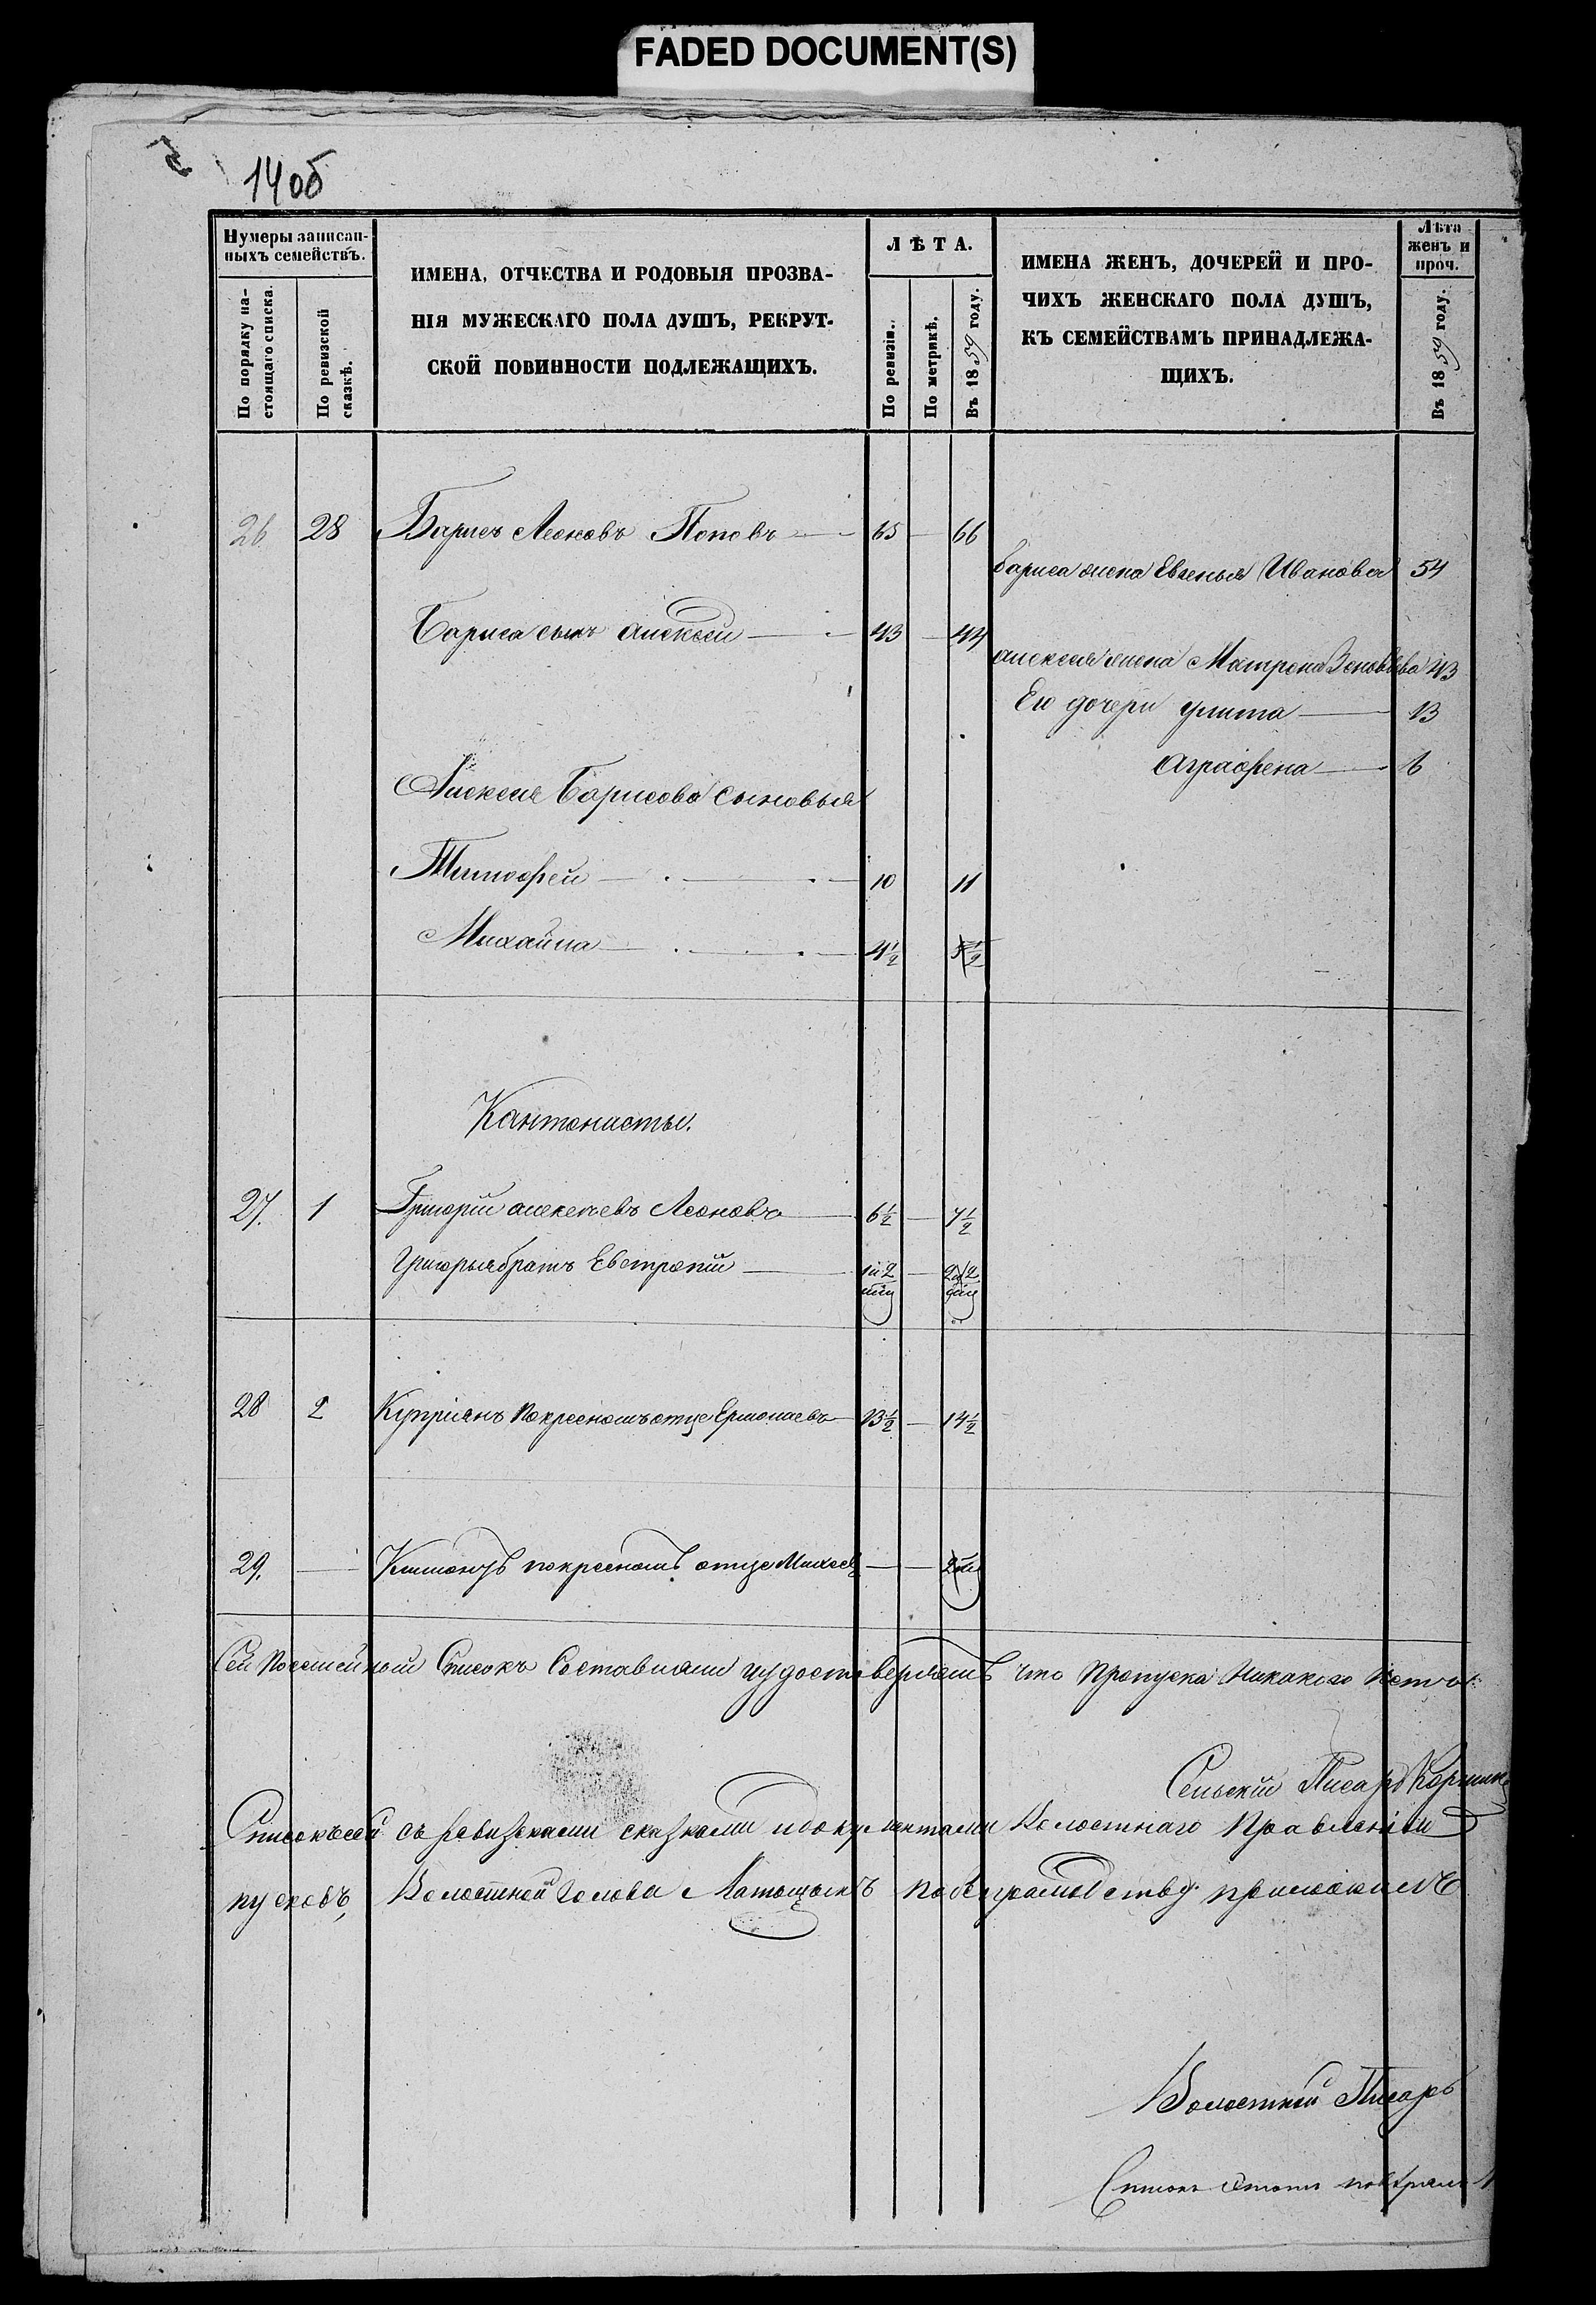 FADED DOCUMENT(S)
14об
Нумеры записан-
ныхъ семействъ.
По порядку на-
стоящаго списка.
По ревизской
сказкѣ.
ИМЕНА, ОТЧЕСТВА И РОДОВЫЯ ПРОЗВА-
НІЯ МУЖЕСКАГО ПОЛА ДУШЪ, РЕКРУТ-
СКОЙ ПОВИННОСТИ ПОДЛЕЖАЩИХЪ.
ЛѢТА.
По ревизіи.
По метрикѣ.
Въ 1859 году.
ИМЕНА ЖЕНЪ, ДОЧЕРЕЙ И ПРО-
ЧИХЪ ЖЕНСКАГО ПОЛА ДУШЪ,
КЪ СЕМЕЙСТВАМЪ ПРИНАДЛЕЖА-
ЩИХЪ.
Лѣта
женъ и
проч.
Въ 1859 году.
26 28 Барисъ Леоновъ Поповъ 65 66
бариса жена Евгенья Иванова 54
Бариса сынъ алексѣй 43 44
алексея жена Матрена Зеновьева 43
Его дочери улита 13
Аграфена 6
Алексея Борисова сыновья
Тимофей 10 11
Михайла 4½ 5½
Кантонисты.
27. 1 Григорій алексѣевъ Леоновъ 6½ 7½
Григорья братъ Евстропій
28 2 Купріянъ покресномъ отце Ермолаевъ 13½ 14½
29. покресномъ отце Михеев
Сей Посемейный Списокъ Составляли иудостоверяемъ что пропуска Никакого Нетъ
Сельскій Писарь
Списокъ сей съ ревизскими сказками идокументами Волостнаго Правленія
пусковъ, Волостной Голова побезграмотству приложилъ
Волостной Писарь
Списокъ этотъ